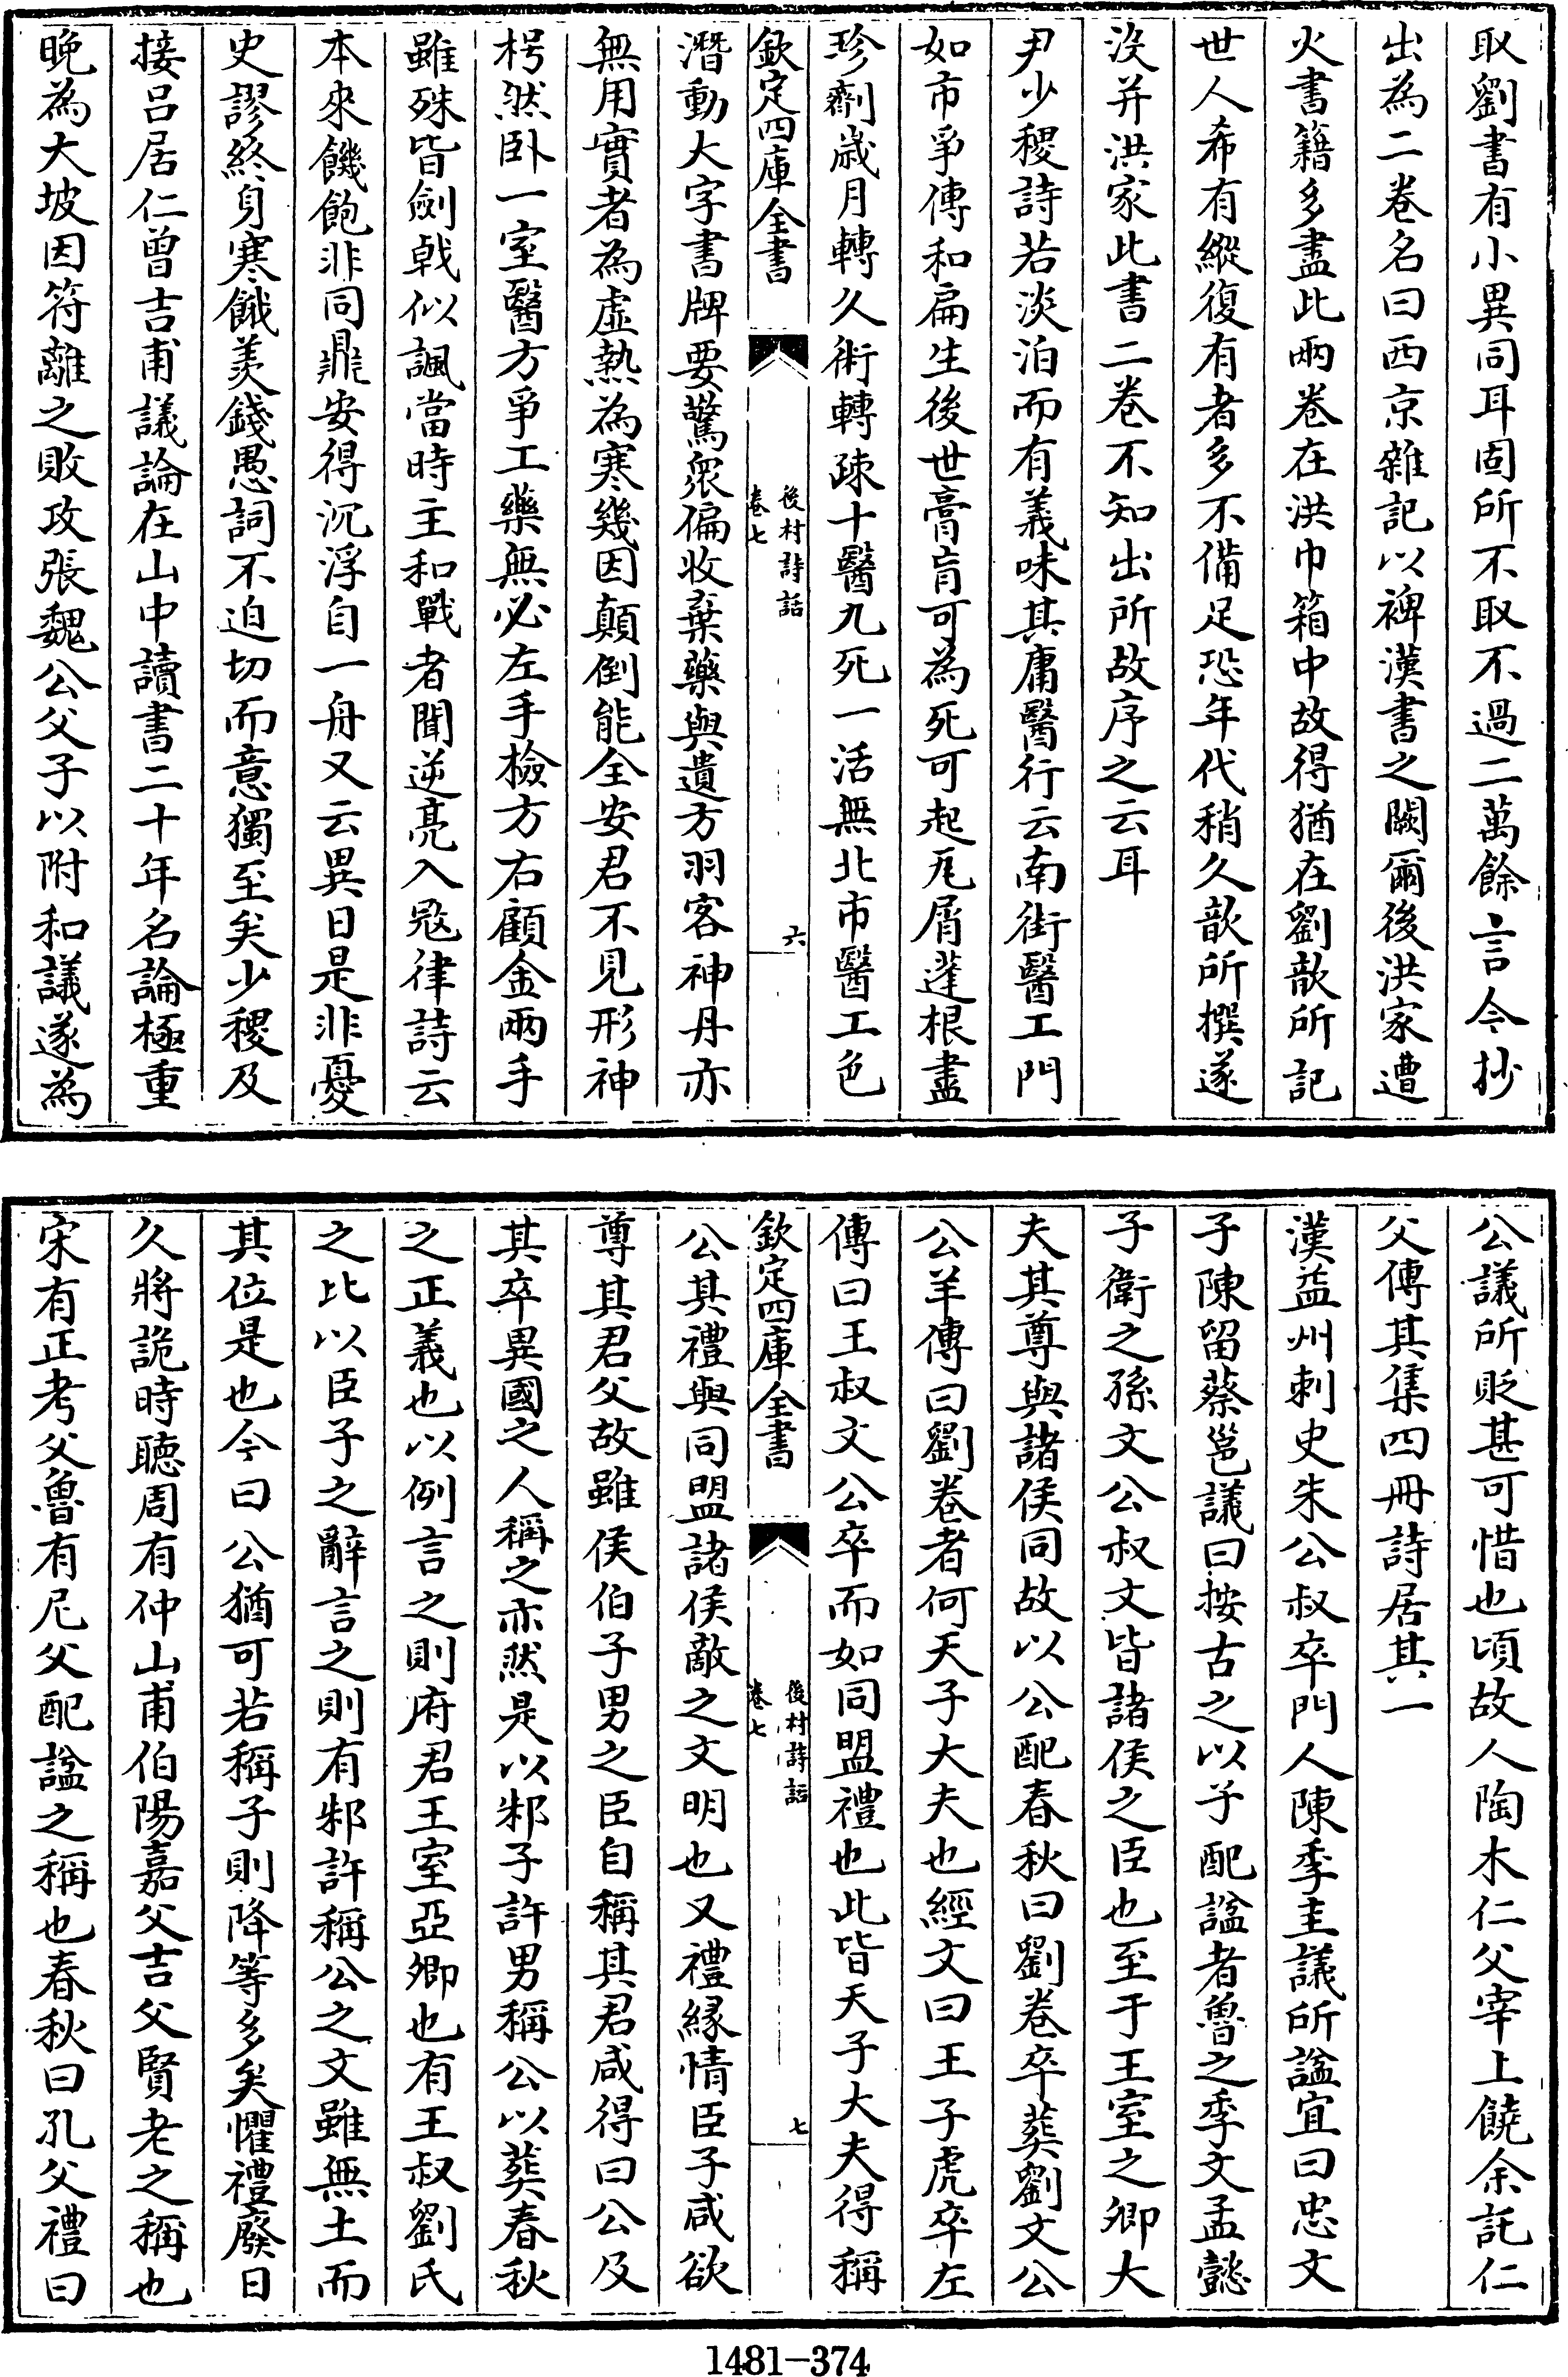 取劉書有小異同耳固所不取不過二萬餘言今抄
出為二卷名曰西京雜記以裨漢書之闕爾後洪家遭
火書籍多盡此兩卷在洪巾箱中故得猶在劉歆所記
世人希有縱復有者多不備足恐年代稍久歆所撰遂
沒并洪家此書二卷不知出所故序之云耳
尹少稷詩若淡泊而有義味其庸醫行云南街醫工門
如市爭傳和扁生後世膏肓可為死可起瓦屑蓬根盡
珍劑歳月轉久術轉疎十醫九死一活無北市醫工色
欽定四庫全書
後村詩話
卷七
六
潛動大字書牌要驚衆偏收棄藥與遺方羽客神丹亦
無用實者為虛熱為寒幾因顛倒能全安君不見形神
枵然臥一室醫方爭工藥無必左手檢方右顧金兩手
雖殊皆劍戟似諷當時主和戰者聞逆亮入㓂律詩云
本來饑飽非同鼎安得沉浮自一舟又云異日是非憂
史謬終身寒餓羨錢愚詞不迫切而意獨至矣少稷及
接吕居仁曾吉甫議論在山中讀書二十年名論極重
晚為大坡因符離之敗攻張魏公父子以附和議遂為
公議所貶甚可惜也頃故人陶木仁父宰上饒余託仁
父傳其集四冊詩居其一
漢益州刺史朱公叔卒門人陳季圭議所諡宜曰忠文
子陳留蔡邕議曰按古之以子配諡者魯之季文孟懿
子衛之孫文公叔文皆諸侯之臣也至于王室之卿大
夫其尊與諸侯同故以公配春秋曰劉卷卒葬劉文公
公羊傳曰劉卷者何天子大夫也經文曰王子虎卒左
傳曰王叔文公卒而如同盟禮也此皆天子大夫得稱
欽定四庫全書
後村詩話
卷七
七
公其禮與同盟諸侯敵之文明也又禮緣情臣子咸欲
尊其君父故雖侯伯子男之臣自稱其君咸得曰公及
其卒異國之人稱之亦然是以邾子許男稱公以葬春秋
之正義也以例言之則府君王室亞卿也有王叔劉氏
之比以臣子之辭言之則有邾許稱公之文雖無土而
其位是也今曰公猶可若稱子則降等多矣懼禮廢日
久將詭時聽周有仲山甫伯陽嘉父吉父賢老之稱也
宋有正考父魯有尼父配諡之稱也春秋曰孔父禮曰
1481-374